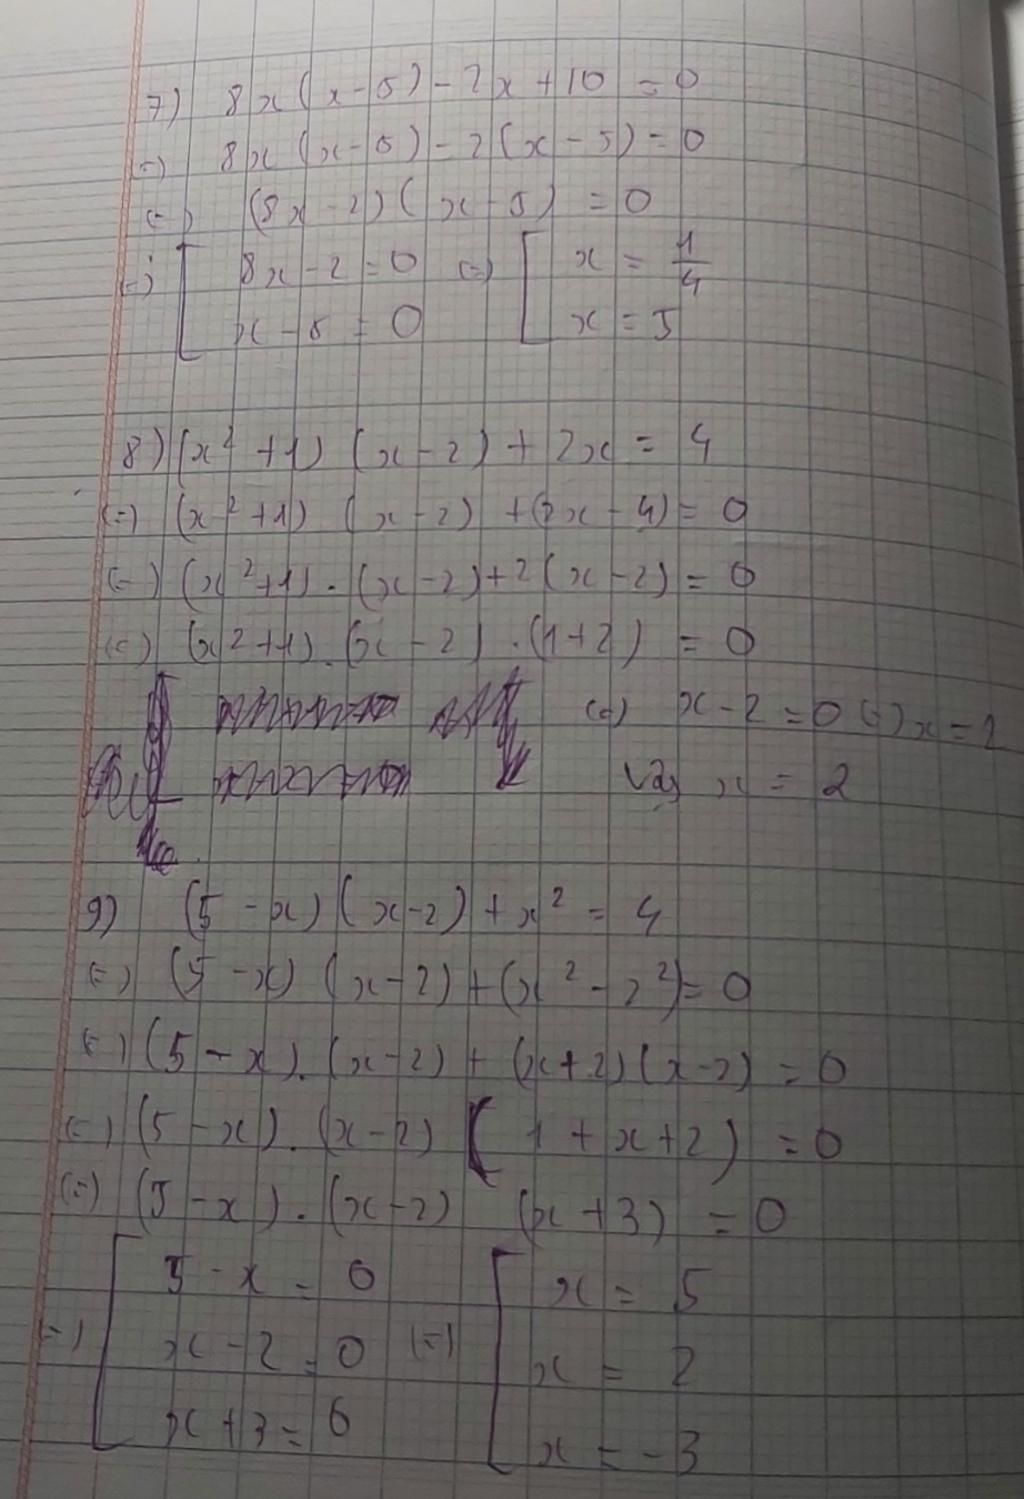 7) 8x(x-5)-2x+10=0
(=) 8x(x-5)-2(x-5)=0
(=) (8x-2)(x-5)=0
(=) [ 8x-2=0 (=) [ x=1/4
x-5=0 x=5
8) (x²+1)(x-2)+2x=4
(=) (x²+1)(x-2)+(2x-4)=0
(=) (x²+1).(x-2)+2(x-2)=0
(=) (x²+1).(x-2).(1+2)=0
(=) x-2=0 (=) x=2
Vậy x=2
9) (5-x)(x-2)+x²=4
(=) (5-x)(x-2)+(x²-2²)=0
(=) (5-x).(x-2)+(x+2)(x-2)=0
(=) (5-x).(x-2)(1+x+2)=0
(=) (5-x).(x-2)(x+3)=0
(=) [ 5-x=0 (=) [ x=5
x-2=0 x=2
x+3=0 x=-3